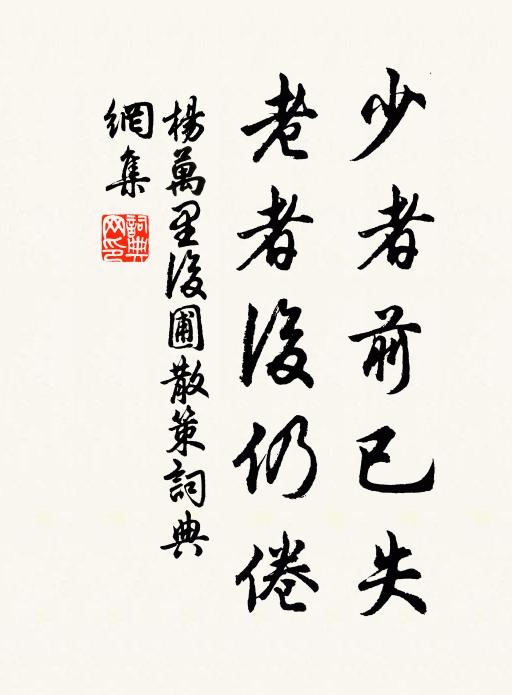 少者前已失
老者後仍倦
楊萬里後圃散策詞典
網集
詞典
网印